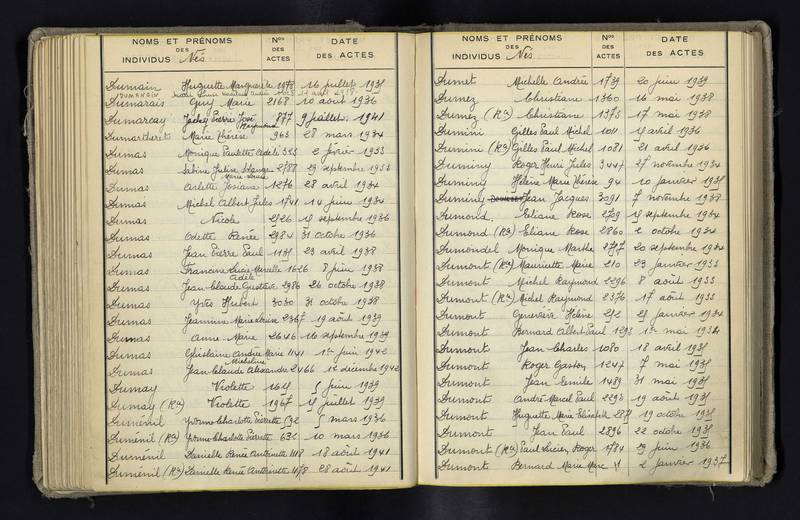 NOMS ET PRÉNOMS DES INDIVIDUS Nés Nos DES ACTES DATE DES ACTES
Dumain Huguette Marguerite 1973 16 juillet 1935
DUMANOIR
Dumarais Guy Marie 2168 10 août 1936
Dumarcay Jacky Pierre José Raymond 877 9 juillet 1941
Dumartheret Marie Thérèse 963 28 mars 1934
Dumas Monique Paulette Adèle 323 2 février 1933
Dumas Sabine Julien Solange Marie Louise 2788 29 septembre 1933
Dumas Arlette Josiane 1276 28 avril 1934
Dumas Michel Albert Jules 1741 14 juin 1934
Dumas Nicole 2526 15 septembre 1936
Dumas Odette Renée 2984 31 octobre 1936
Dumas Jean Pierre Paul 1135 23 avril 1938
Dumas Francine Lucie Marcelle Adèle 1626 8 juin 1938
Dumas Jean Claude Gustave 2986 26 octobre 1938
Dumas Yves Hubert 3030 31 octobre 1938
Dumas Jeannine Marie Louise 2367 19 août 1939
Dumas Anne Marie 2646 16 septembre 1939
Dumas Ghislaine Andrée Marie Micheline 1141 1er juin 1942
Dumas Jean Claude Alexandre 2466 1er décembre 1942
Dumay Violette 1645 5 juin 1939
Dumay (Ron) Violette 1967 15 juillet 1939
Duménil Yvonne Charlotte Pierrette 592 5 mars 1936
Duménil (Ron) Yvonne Charlotte Pierrette 636 10 mars 1936
Duménil Danielle Renée Antoinette 1118 18 août 1941
Duménil (Ron) Danielle Renée Antoinette 1178 28 août 1941
NOMS ET PRÉNOMS DES INDIVIDUS Nés Nos DES ACTES DATE DES ACTES
Dumet Michelle Andrée 1739 20 juin 1939
Dumez Christiane 1360 16 mai 1938
Dumez (Ron) Christiane 1373 17 mai 1938
Dumini Gilles Paul Michel 1011 15 avril 1936
Dumini (Ron) Gilles Paul Michel 1081 21 avril 1936
Duminy Roger Henri Jules 3447 27 novembre 1934
Duminy Hélène Marie Thérèse 94 10 janvier 1935
Duminy Jean Jacques 3091 7 novembre 1938
Dumond Eliane Rose 2739 15 septembre 1934
Dumond (Ron) Eliane Rose 2860 2 octobre 1934
Dumondel Monique Marthe 2757 20 septembre 1934
Dumont (Ron) Mauricette Marie 210 23 janvier 1933
Dumont Michel Raymond 2296 8 août 1933
Dumont (Ron) Michel Raymond 2376 17 août 1933
Dumont Geneviève Hélène 252 25 janvier 1934
Dumont Bernard Albert Paul 1293 1er mai 1934
Dumont Jean Charles 1080 18 avril 1935
Dumont Roger Gaston 1247 7 mai 1935
Dumont Jean Emile 1489 31 mai 1935
Dumont André Marcel Paul 2293 19 août 1935
Dumont Huguette Marie Elisabeth 2875 19 octobre 1935
Dumont Jean Paul 2896 22 octobre 1935
Dumont (Ron) Paul Lucien Roger 1784 29 juin 1936
Dumont Bernard Marie Marc 11 2 janvier 1937